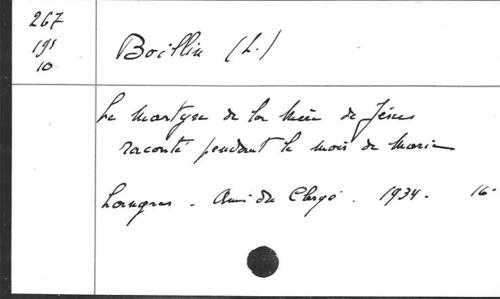 267
195
10
Boillin (L.)
Le Martyre de la Mère de Jésus
raconté pendant le mois de Marie
Langres - Ami du Clergé . 1934 - 16°